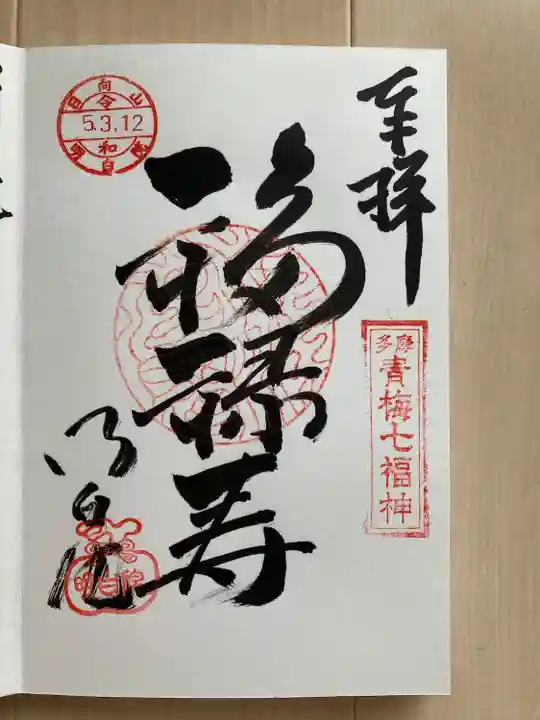 奉拝
多摩
青梅七福神
福禄寿
日向山
令
5.3.12
和
明白院
明白院